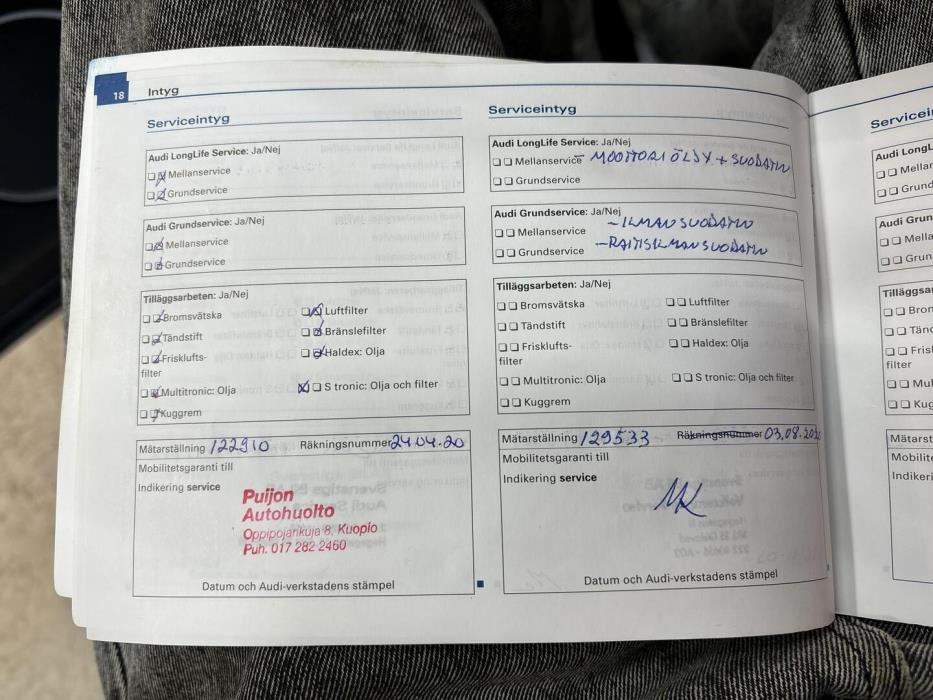 18 Intyg
Serviceintyg
Audi LongLife Service: Ja/Nej
Mellanservice
Grundservice
Audi Grundservice: Ja/Nej
Mellanservice
Grundservice
Tilläggsarbeten: Ja/Nej
Bromsvätska
Luftfilter
Tändstift
Bränslefilter
Frisklufts-
filter
Haldex: Olja
Multitronic: Olja
S tronic: Olja och filter
Kuggrem
Mätarställning 122910 Räkningsnummer 24.04.20
Mobilitetsgaranti till
Indikering service
Puijon
Autohuolto
Oppipojankuja 8, Kuopio
Puh. 017 282 2460
Datum och Audi-verkstadens stämpel
Serviceintyg
Audi LongLife Service: Ja/Nej
Mellanservice - MOOTTORIÖLJY + SUODATIN
Grundservice
Audi Grundservice: Ja/Nej
Mellanservice - ILMANSUODATIN
Grundservice - RAITISILMANSUODATIN
Tilläggsarbeten: Ja/Nej
Bromsvätska
Luftfilter
Tändstift
Bränslefilter
Frisklufts-
filter
Haldex: Olja
Multitronic: Olja
S tronic: Olja och filter
Kuggrem
Mätarställning 129533 Räkningsnummer 03.08.
Mobilitetsgaranti till
Indikering service
MK
Datum och Audi-verkstadens stämpel